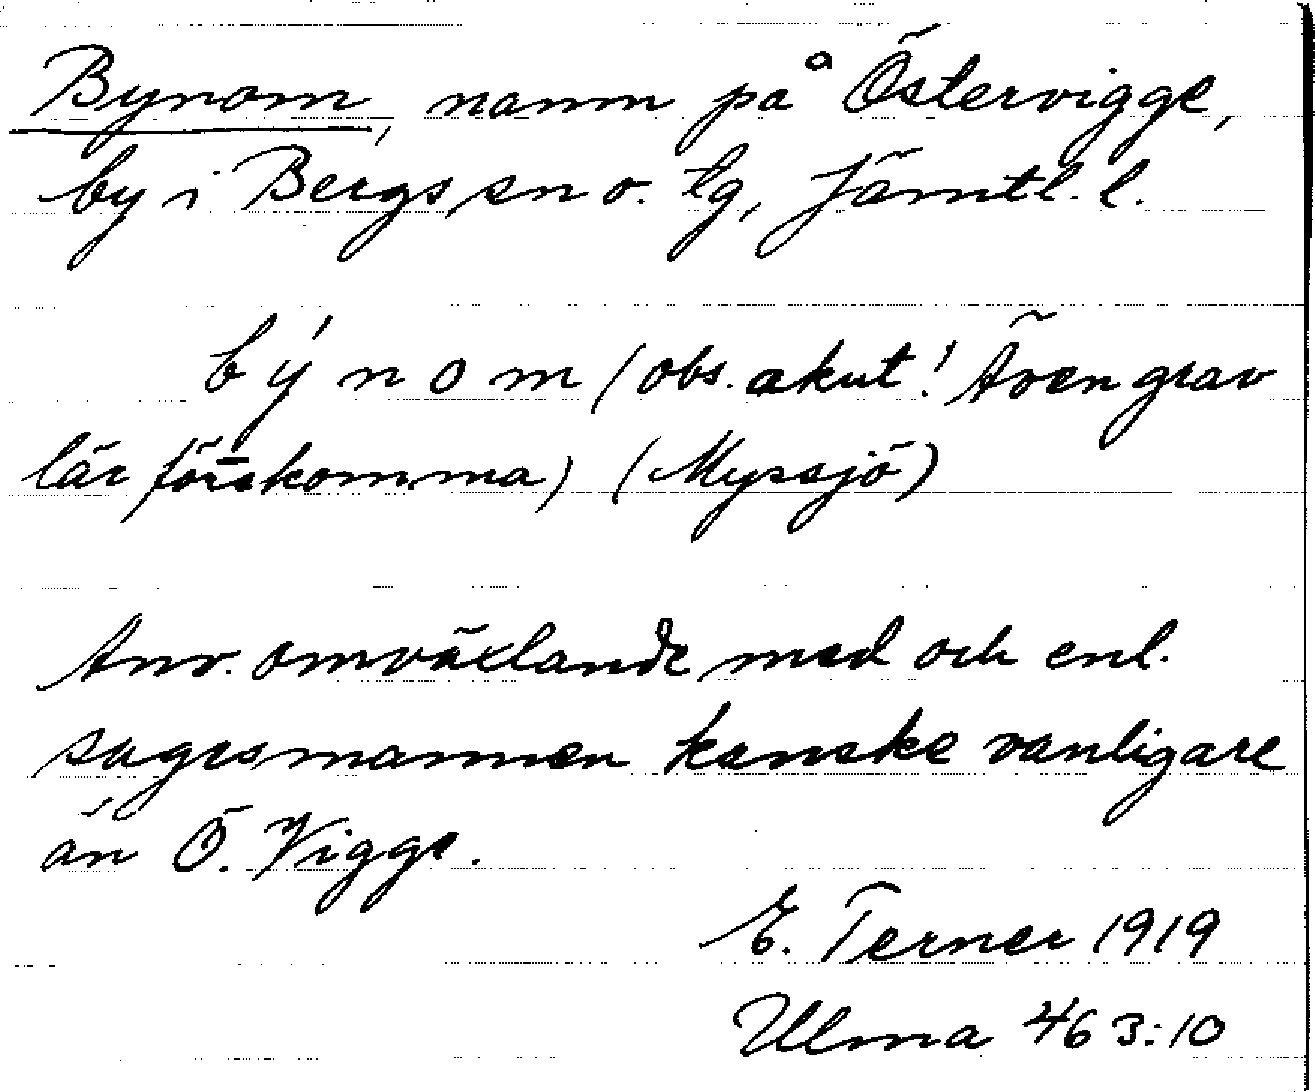 Bynom, namn på Östervigge,
by i Bergs sn o. tg, Jämtl. l.
bý n o m (obs. akut! Även grav
lär förekomma) (Myssjö)
Anv. omväxlande med och enl.
sagesmannen kanske vanligare
än Ö. Vigge.
E. Terner 1919
Ulma 463:10